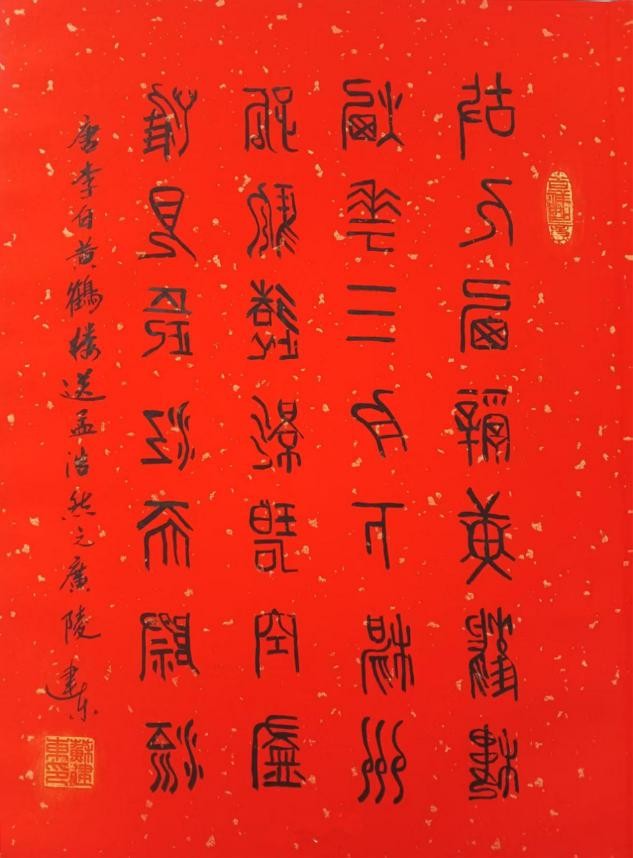 故人西辭黃鶴樓
煙花三月下揚州
孤帆遠影碧空盡
唯見長江天際流
唐李白黄鶴楼送孟浩然之廣陵 建东
蘇建東印